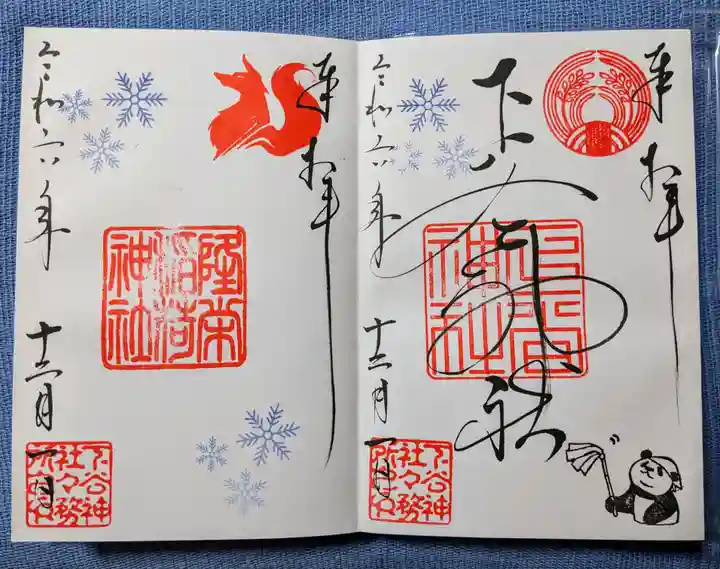 奉拝
下谷神社
下谷神社
令和六年 十二月 一日
下谷神社々務所之印
奉拝
隆栄稲荷神社
令和六年 十二月 一日
下谷神社々務所之印